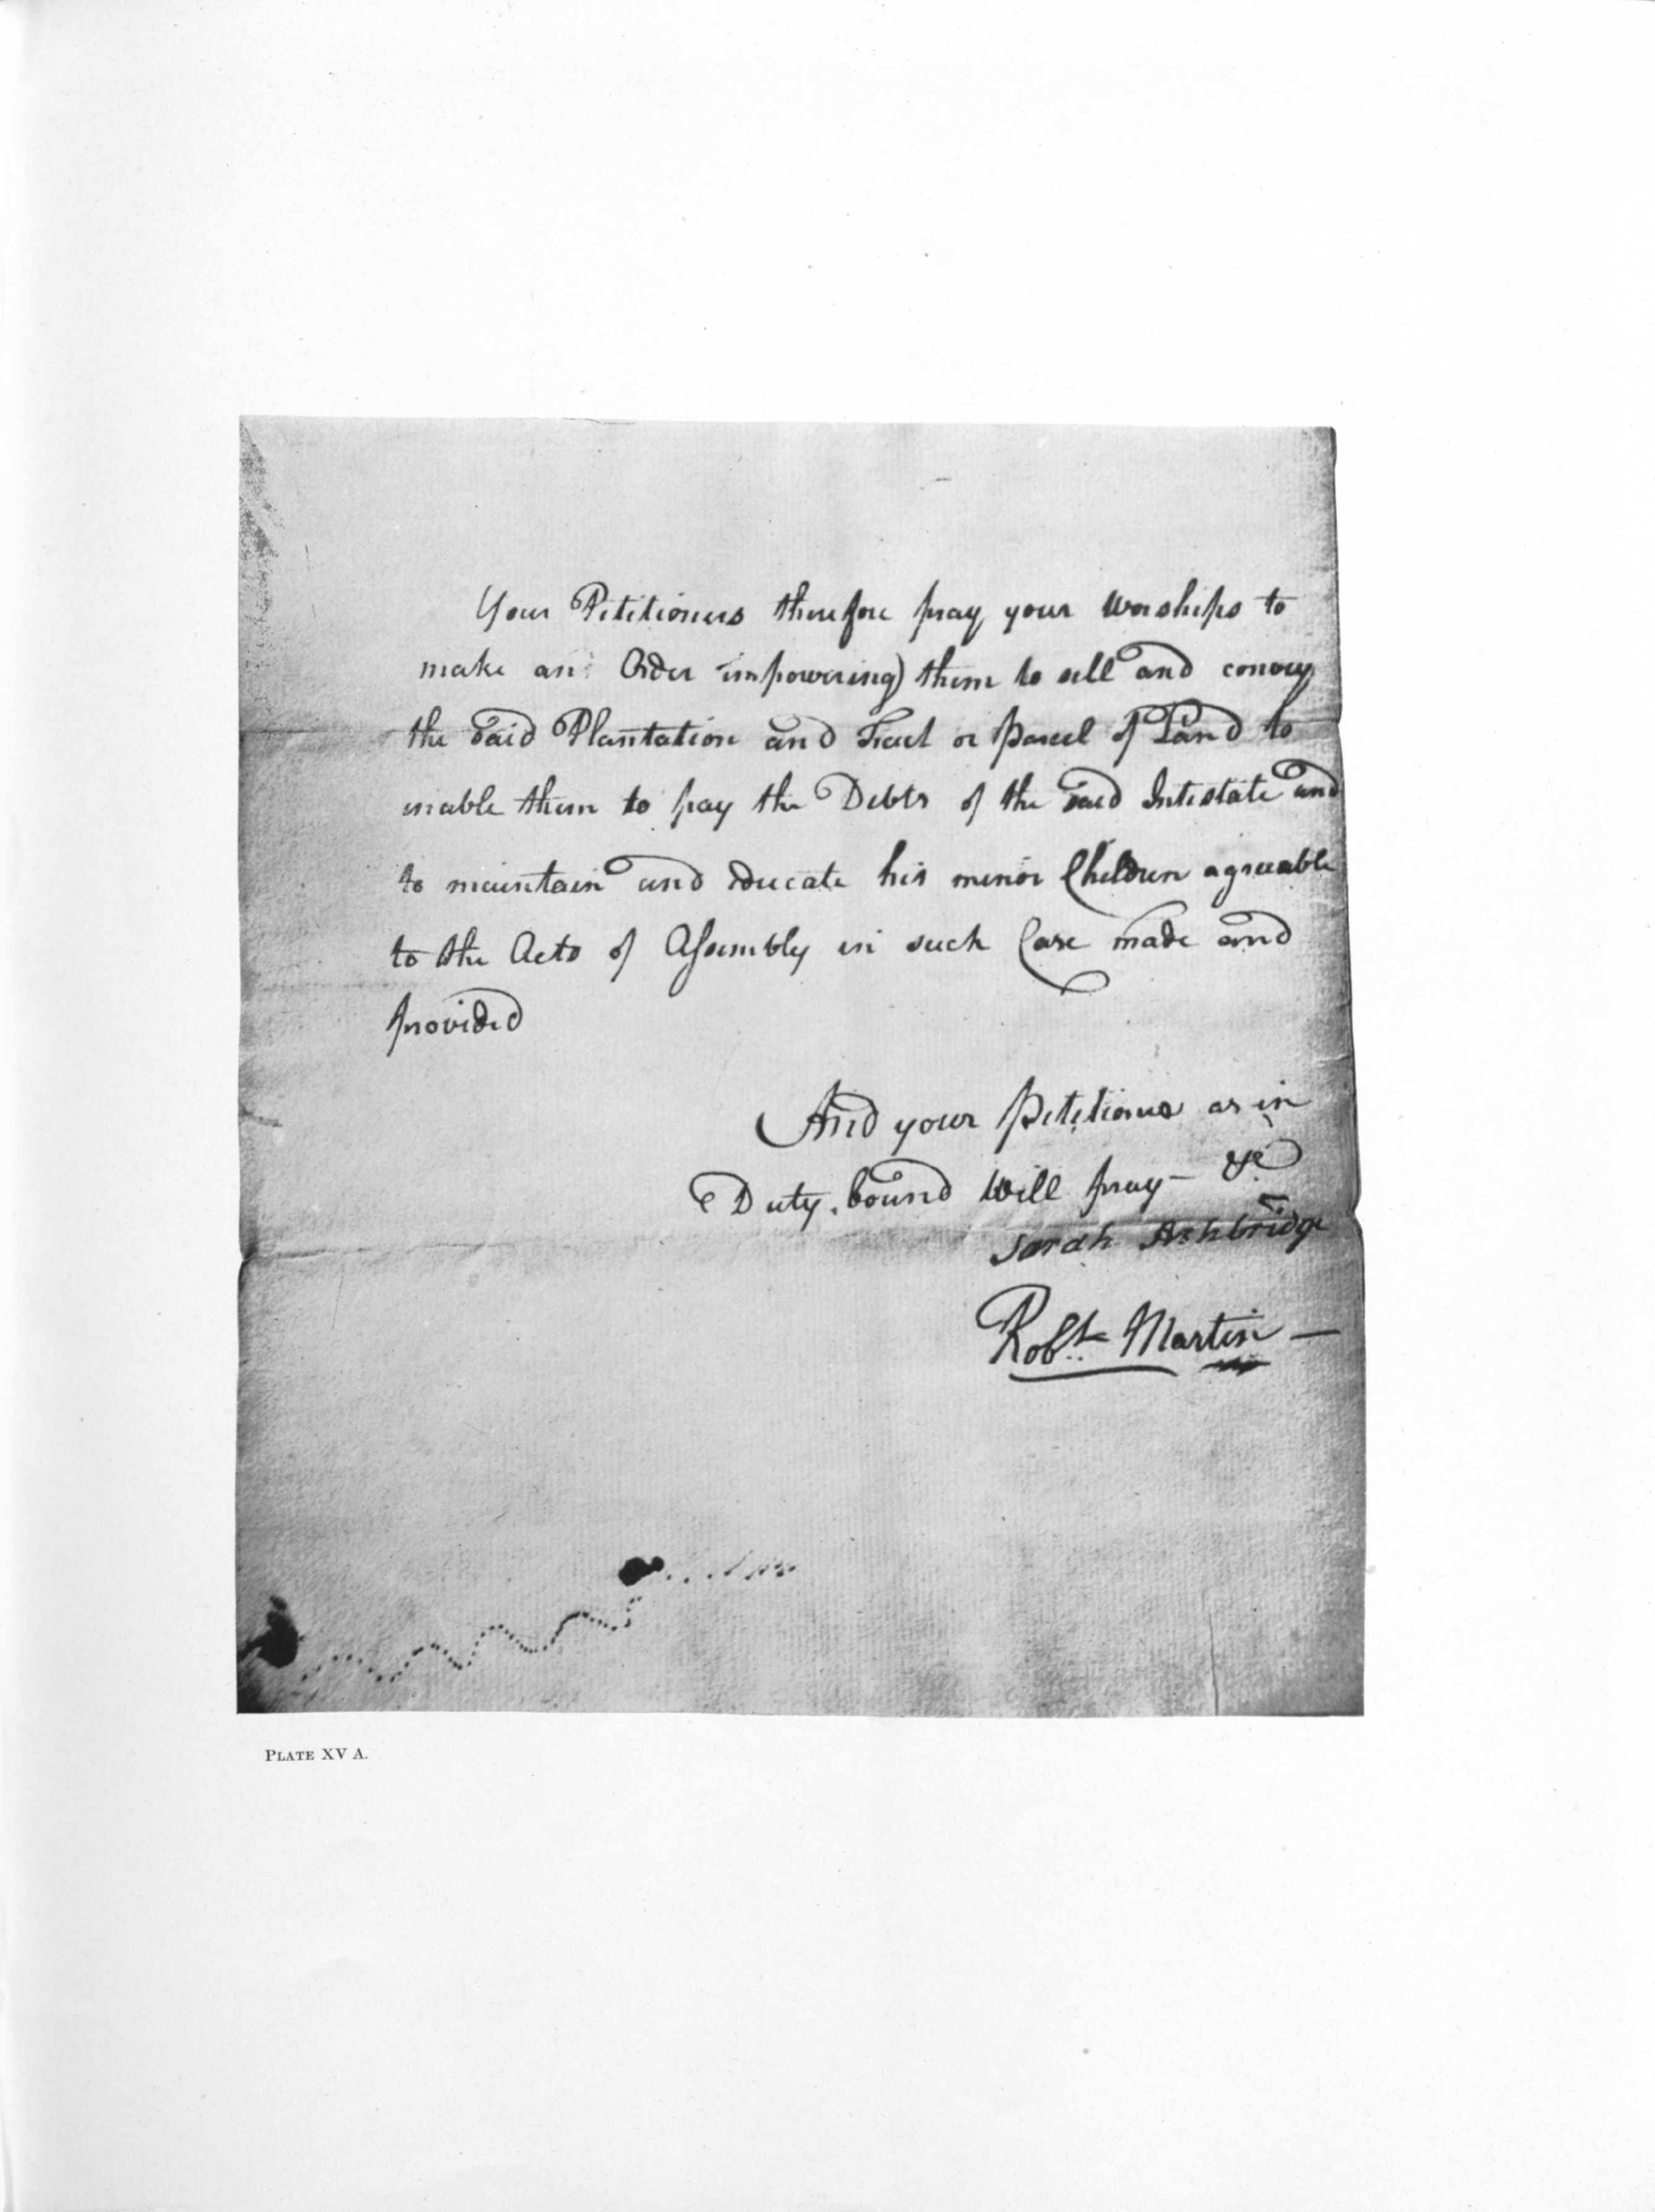 Your Petitioners therefore pray your worships to
make an Order impowering them to sell and convey
the Said Plantation and Tract or parcel of Land to
enable them to pay the Debts of the Said Intestate and
to maintain and educate his minor Children agreeable
to the Acts of Assembly in such Case made and
provided
And your Petitioners as in
Duty bound will pray
Sarah Ashbridge
Robt. Martin
PLATE XV A.